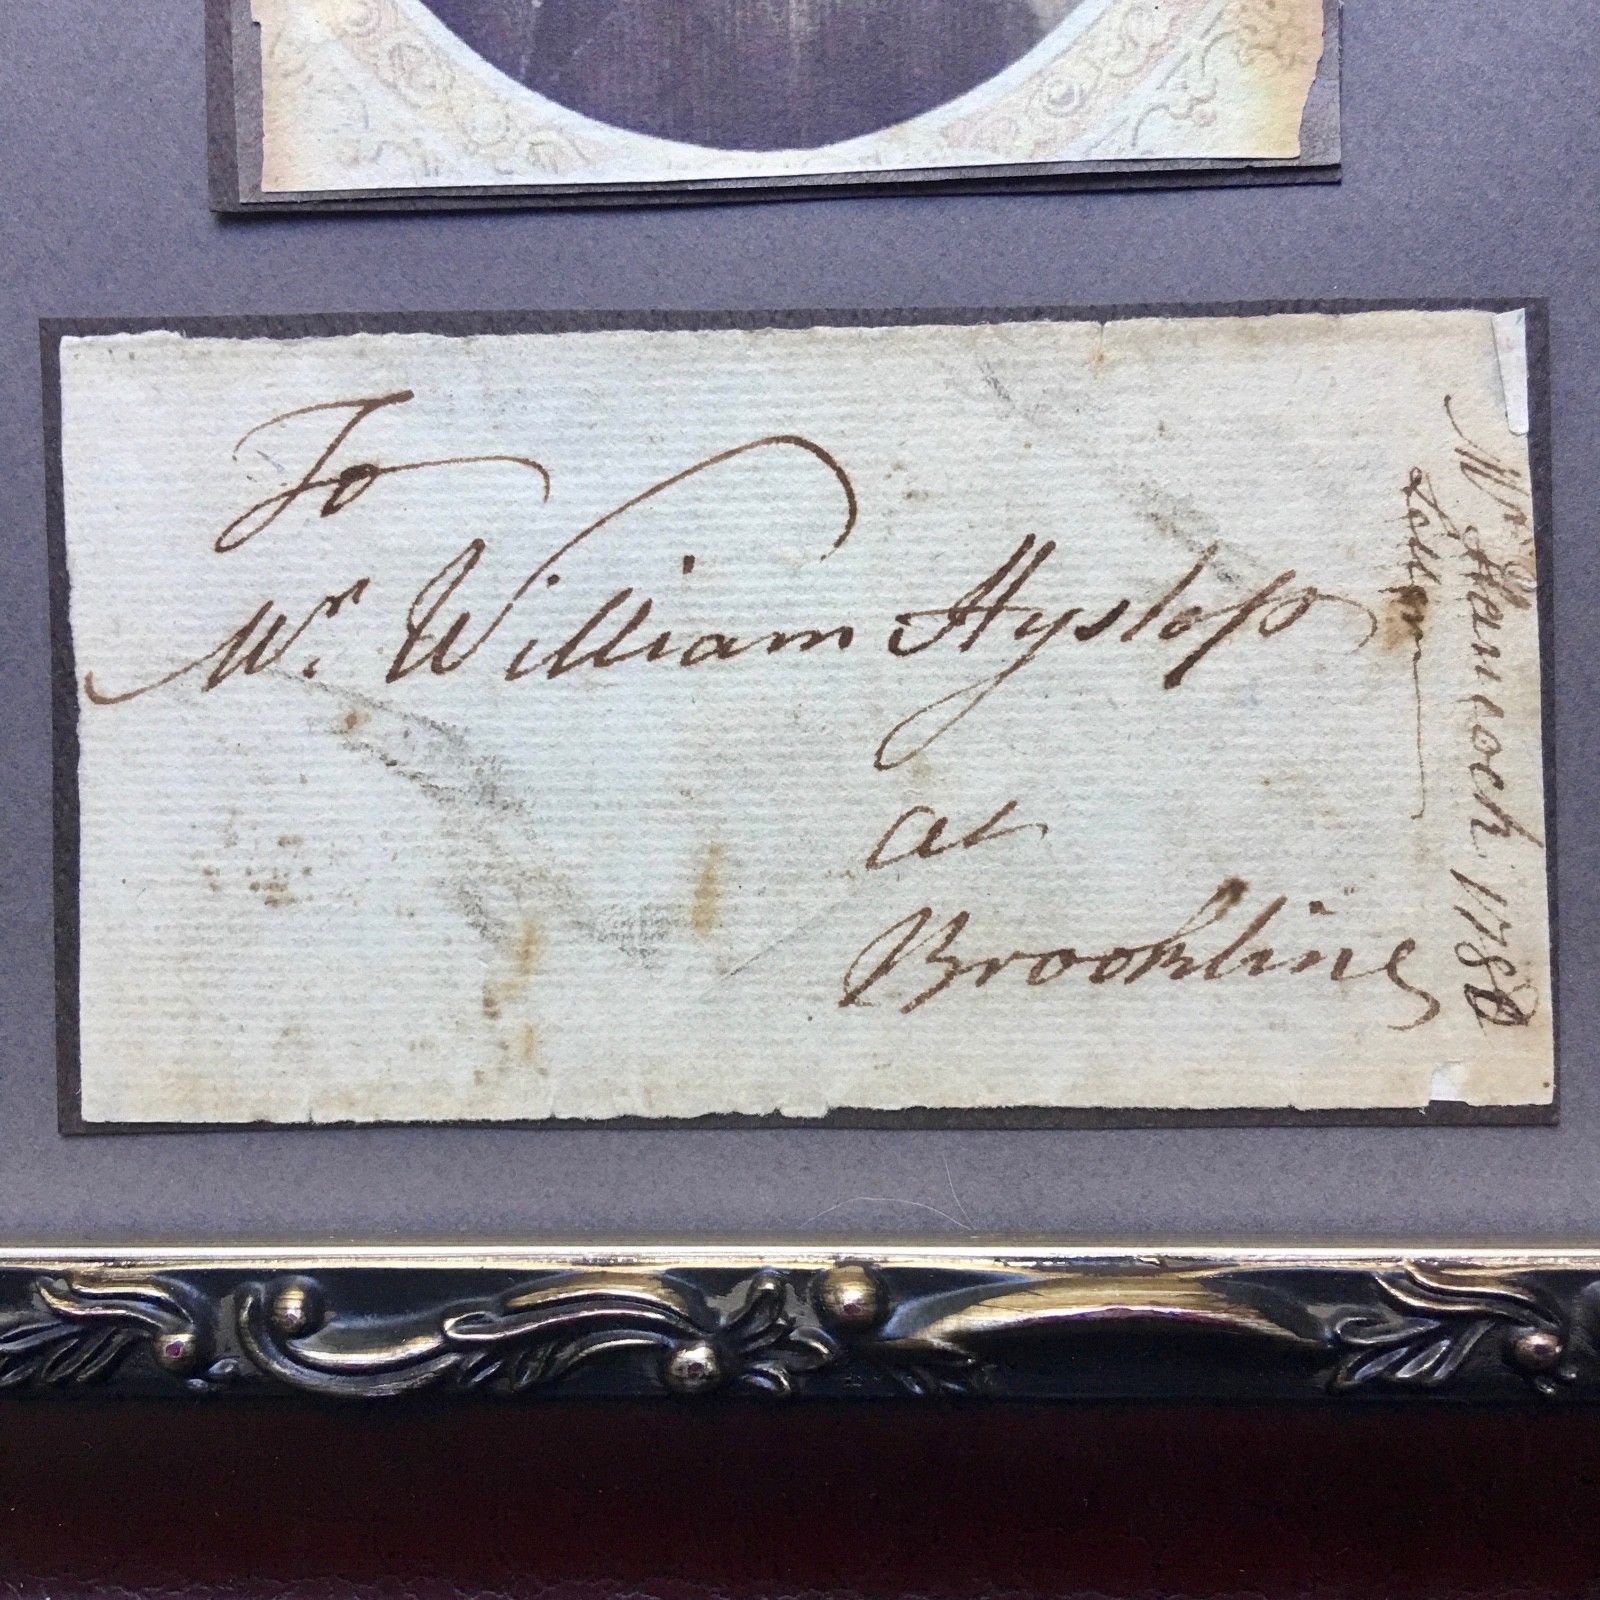 To
Mr. William Hyslop
at
Brookline
Hancock 1788
Letter